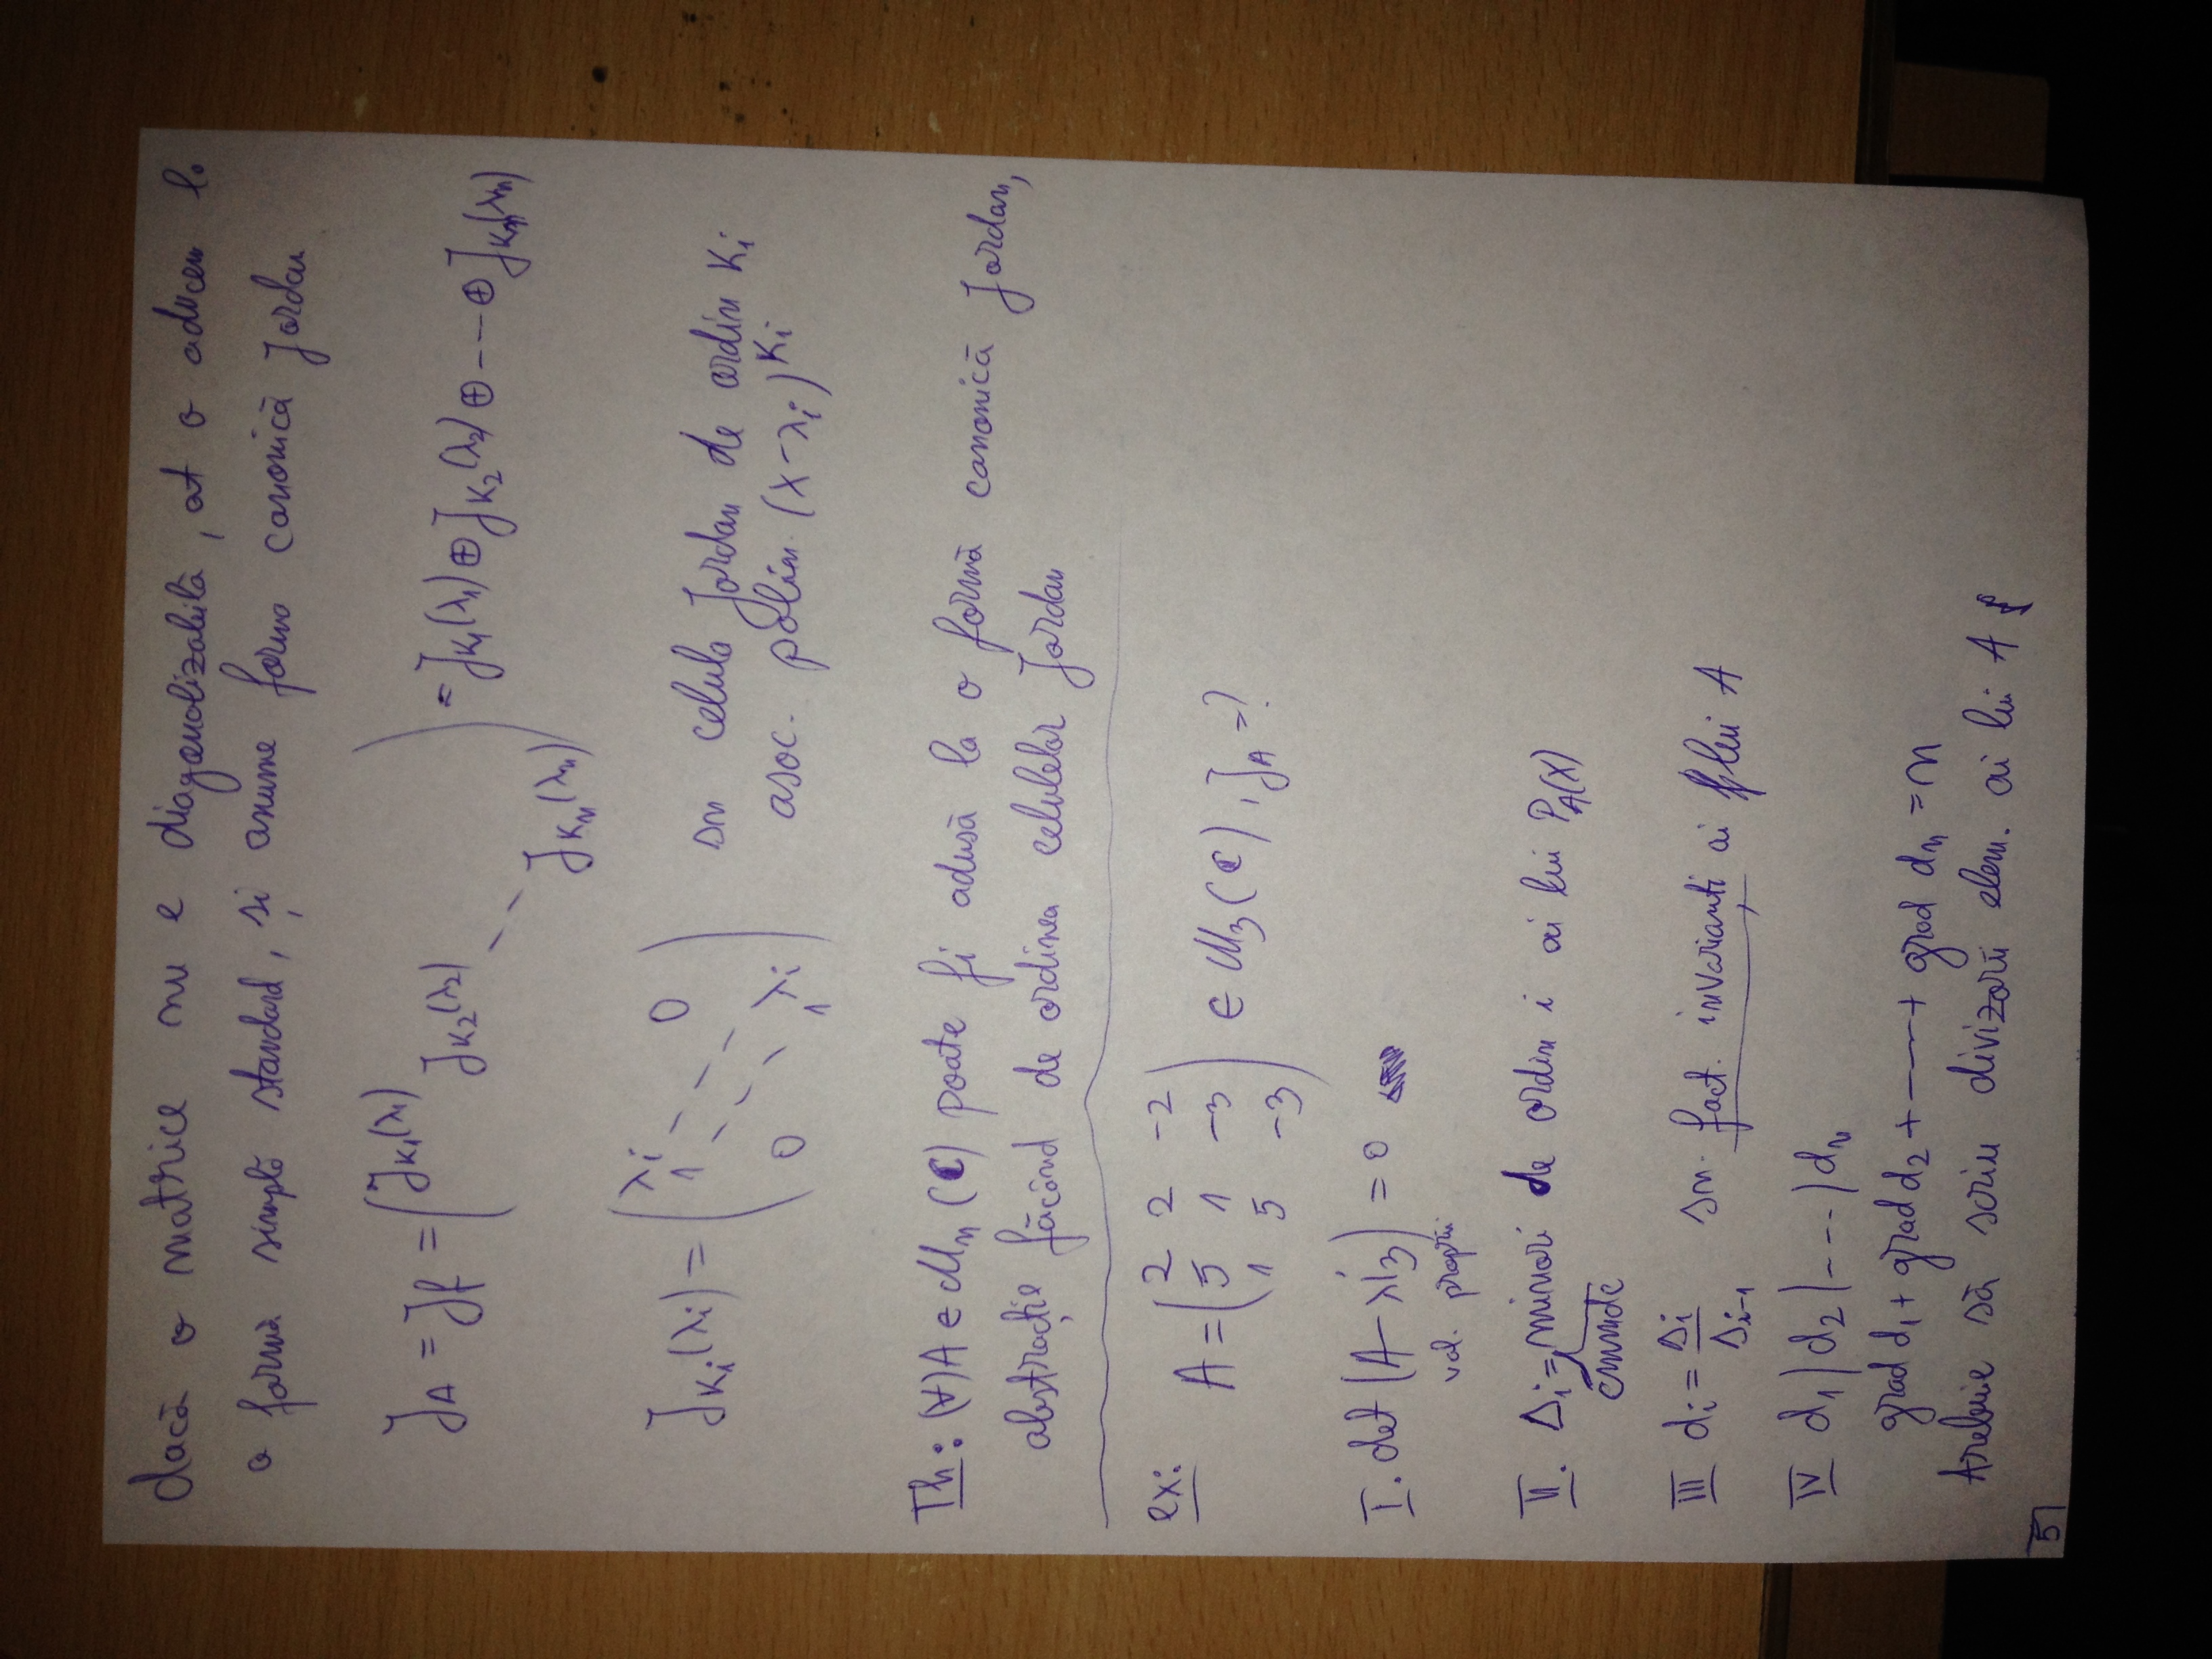 dacă o matrice nu e diagonalizabilă, at o aducem la
o formă simplă standard, și anume forma canonică Jordan
J_A = J_f = ( J_{K_1}(λ_1) J_{K_2}(λ_2) \ \ J_{K_n}(λ_n) ) = J_{K_1}(λ_1) ⊕ J_{K_2}(λ_2) ⊕ --- ⊕ J_{K_n}(λ_n)
J_{K_i}(λ_i) = ( λ_i 0
1
0 λ_i
1 )
sn celula Jordan de ordin K_i
asoc. polin. (X-λ_i)^{K_i}
Th: (∀) A ∈ M_n (ℂ) poate fi adusă la o formă canonică Jordan,
abstracție făcând de ordinea celulelor Jordan
ex:
A = ( 2 2 -2
5 1 -3
1 5 -3 ) ∈ M_3 (ℂ), J_A = ?
I. det (A - λI_3) = 0
val. proprii
II. Δ_i = minori de ordin i ai lui P_A(X)
cmmdc
III d_i = Δ_i / Δ_{i-1} sn. fact. invarianți ai lui A
IV d_1 | d_2 | --- | d_n
grad d_1 + grad d_2 + --- + grad d_n = n
trebuie să scriu divizorii elem. ai lui A
5